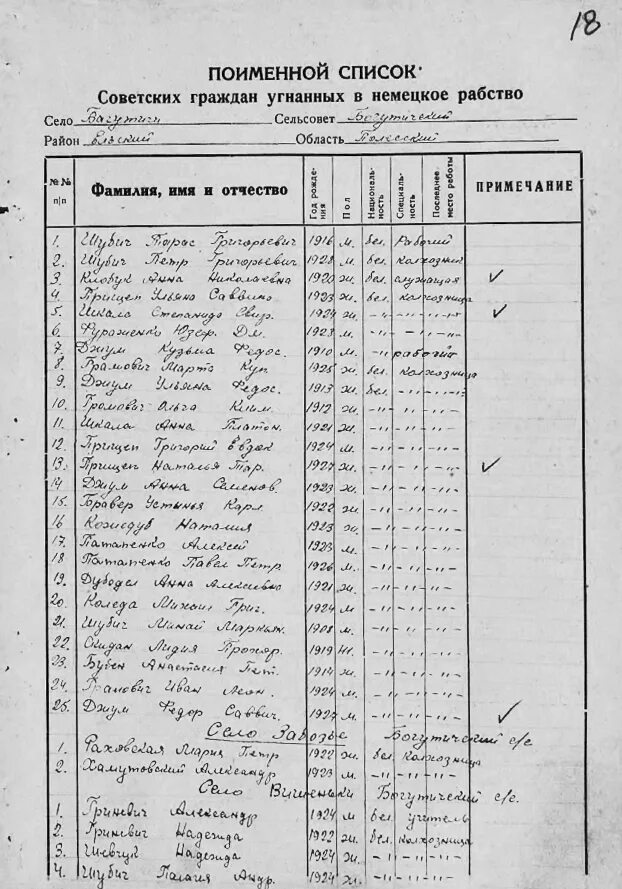 18
ПОИМЕННОЙ СПИСОК
Советских граждан угнанных в немецкое рабство
Село Багутичи Сельсовет Богутический
Район Ельский Область Полесский
№№ п/п Фамилия, имя и отчество Год рождения Пол Национальность Специальность Последнее место работы ПРИМЕЧАНИЕ
1. Шубич Тарас Григорьевич 1916 м. бел. Рабочий
2. Шубич Петр Григорьевич 1928 м. бел. колхозник
3. Кловук Анна Николаевна 1920 ж. бел. служащая ✓
4. Прищеп Ульяна Саввична 1923 ж. бел. колхозница
5. Шкала Степанида Свир. 1924 ж. -"- -"- -"- ✓
6. Юзеф. Дм. 1923 м. -"- -"- -"-
7. Джум Кузьма Федос. 1910 м. -"- рабочий
8. Грамович Марта Куп. 1925 ж. бел. колхозница
9. Джум Ульяна Федос. 1913 ж. бел. -"- -"-
10. Громович Ольга Клим. 1912 ж. -"- -"- -"-
11. Шкала Анна Платон. 1921 ж. -"- -"- -"-
12. Прищеп Григорий 1924 м. -"- -"- -"-
13. Прищеп Наталья Тар. 1927 ж. -"- -"- -"- ✓
14 Джум Анна Семенов. 1923 ж. -"- -"- -"-
15. Бравер Устынья Карл 1922 ж. -"- -"- -"-
16 Кожедуб Наталия 1923 ж. -"- -"- -"-
17. Патапенко Алексей 1923 м. -"- -"- -"-
18 Патапенко Павел Петр 1926 м. -"- -"- -"-
19. Дубодел Анна Алексеевна 1921 ж. -"- -"- -"-
20. Коледа Михаил Григ. 1924 м -"- -"- -"-
21. Шубич Минай Маркьян. 1908 м. -"- -"- -"-
22. Скидан Лидия Прохор. 1919 ж. -"- -"- -"-
23. Бубен Анастасия Пет. 1914 ж. -"- -"- -"-
24. Гранович Иван Леон. 1924 м. -"- -"- -"-
25. Джум Федор Саввич. 1927 м. -"- -"- -"- ✓
Село Завозье Богутический с/с
1. Раховская Мария Петр 1922 ж. бел. колхозница
2. Хамутовский Александр 1923 м. -"- -"- -"-
Село Вишеньки Богутический с/с.
1. Гриневич Александр 1924 м бел. учитель
2. Гриневич Надежда 1922 ж. бел. колхозница
3. Шевчук Надежда 1924 ж. -"- -"- -"-
4. Шубич Палагия Андр. 1924 ж. -"- -"- -"-